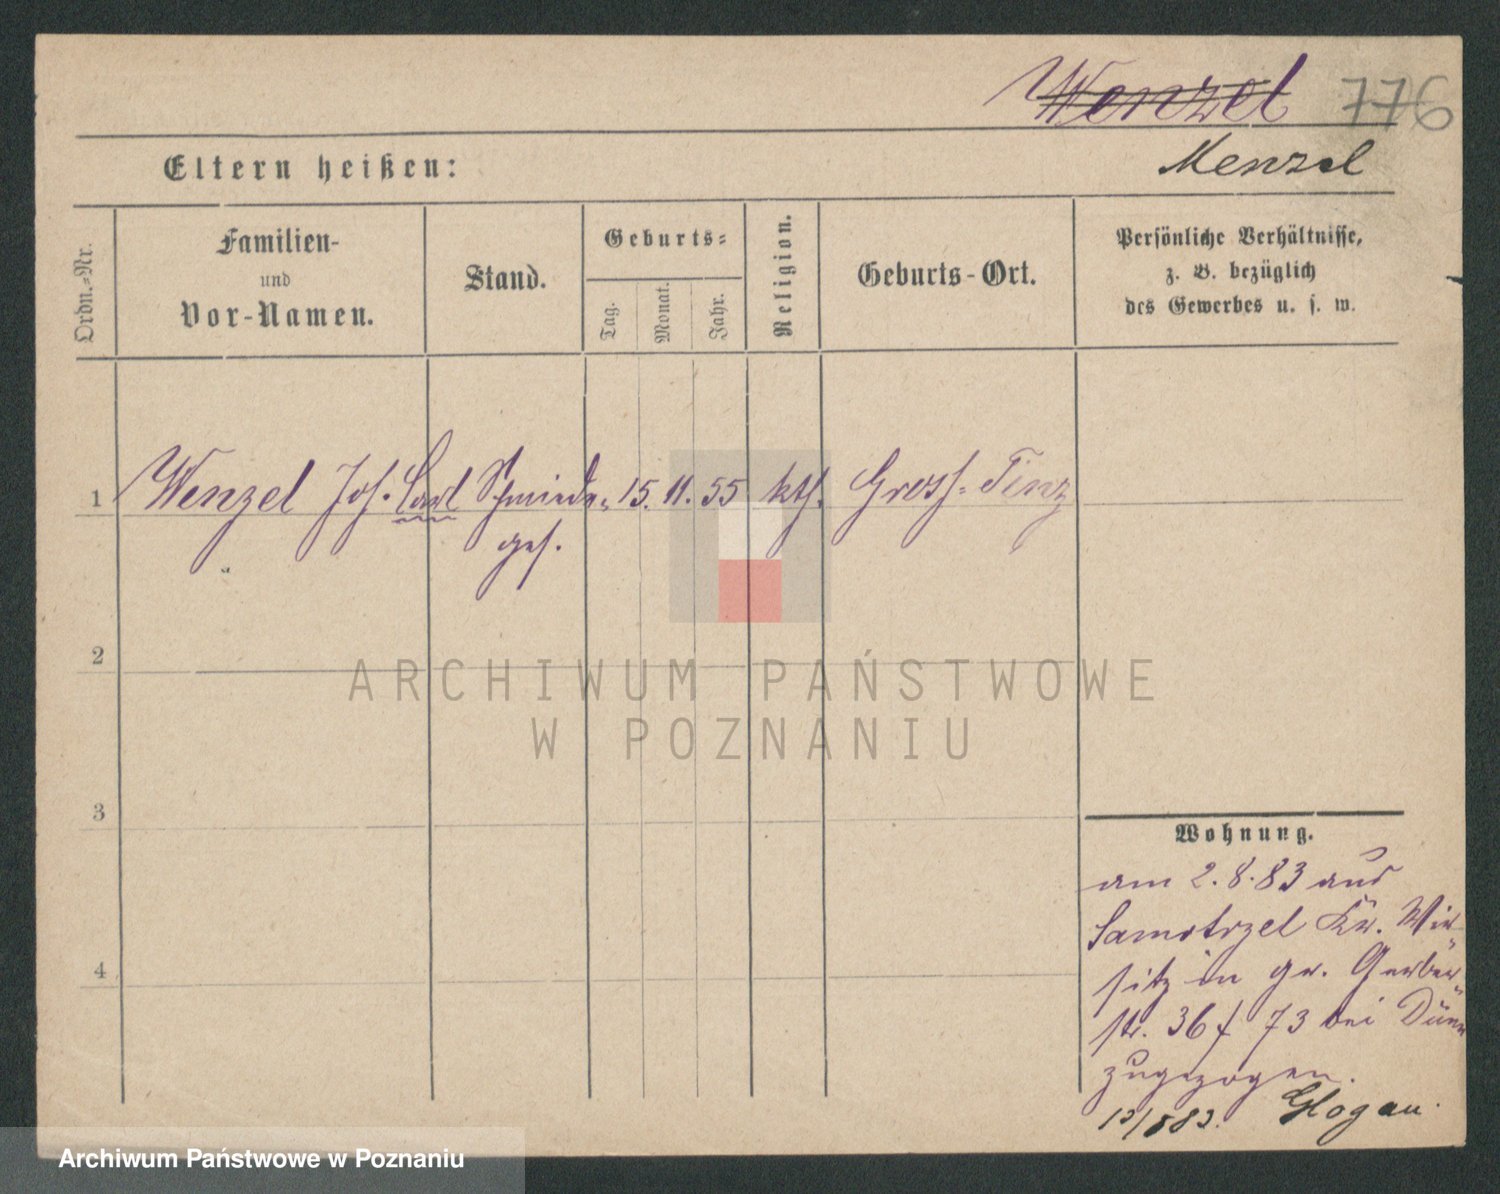 Wenzel 776
Eltern heißen: Menzel
Ordn.=Nr.
Familien-
und
Vor-Namen.
Stand.
Geburts=
Tag.
Monat.
Jahr.
Religion.
Geburts-Ort.
Persönliche Verhältnisse,
z. B. bezüglich
des Gewerbes u. s. w.
1 Wenzel Joh. Carl Schmiede= 15. 11. 55 kth. Gross-Tinz
ges.
2
ARCHIWUM PAŃSTWOWE
W POZNANIU
3
Wohnung.
am 2.8.83 aus
Samotrzel Kr. Wir=
sitz in gr. Gerber=
str. 36 73 bei
zugezogen.
4
Glogau.
Archiwum Państwowe w Poznaniu